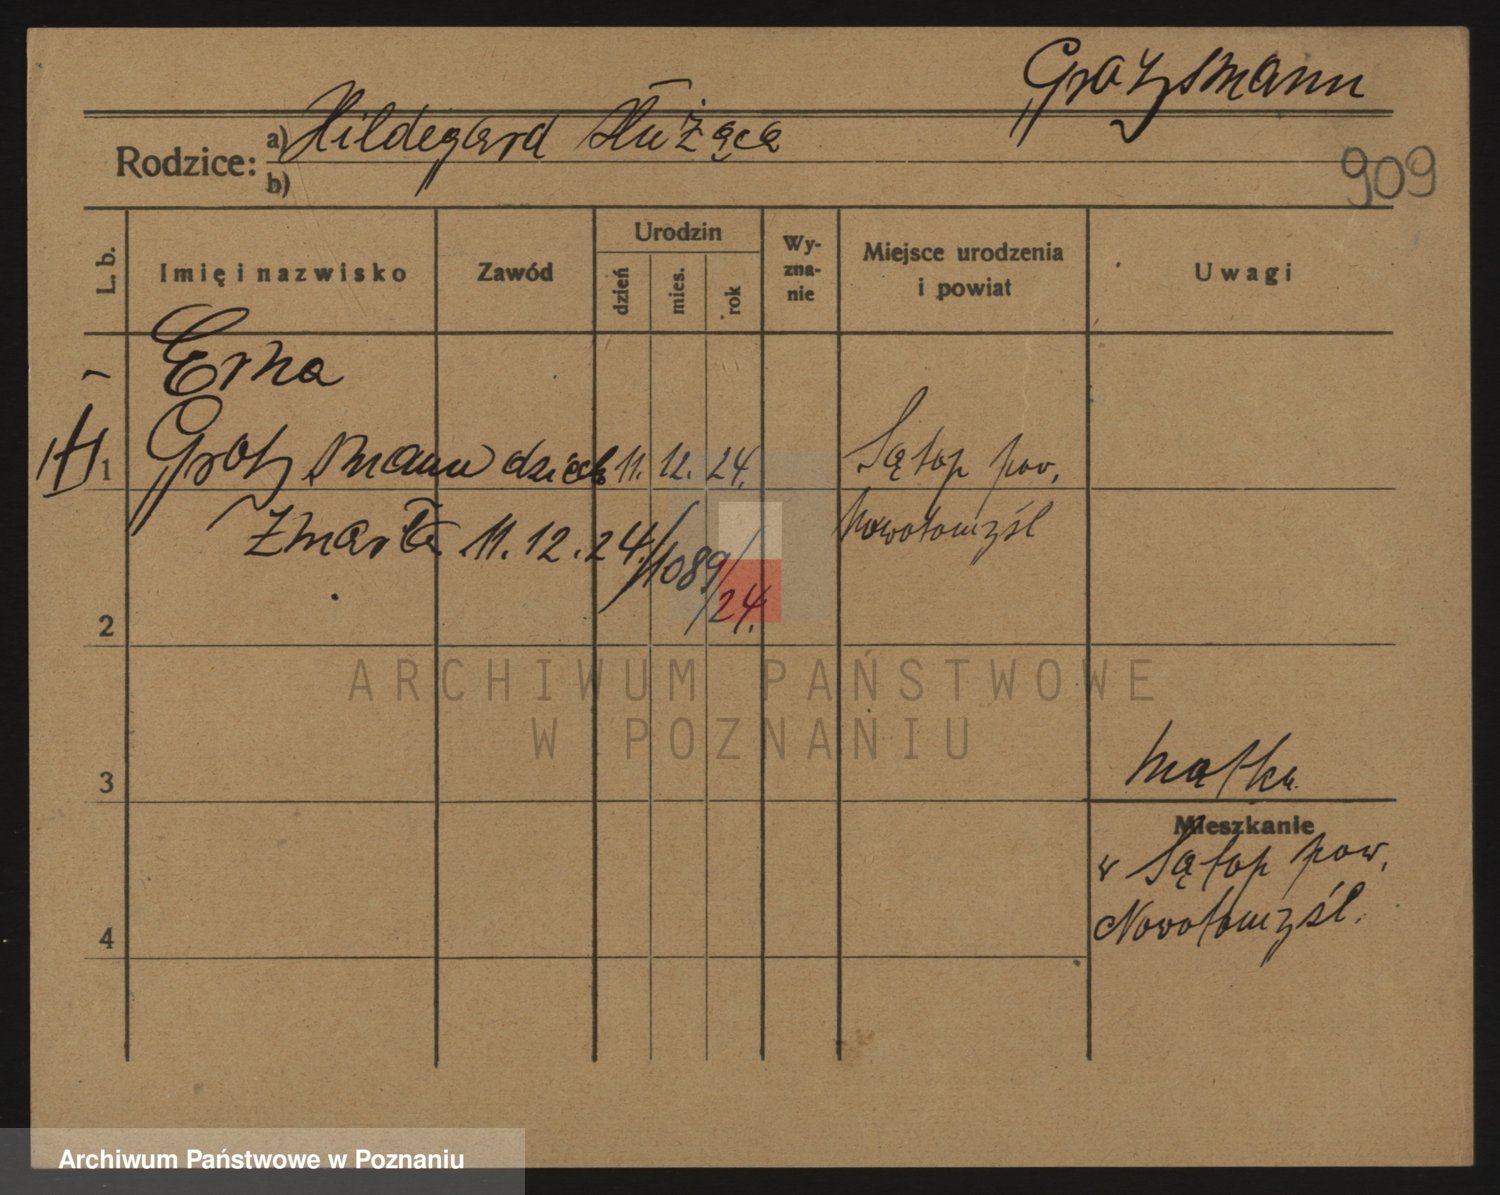 Grotzsmann
Rodzice: a) Hildegard służąca
b)
909
L. b.
Imię i nazwisko
Zawód
Urodzin
dzień
mies.
rok
Wy-
zna-
nie
Miejsce urodzenia
i powiat
Uwagi
Erna
1 Grotzsmann dziecko 11. 12. 24. Sątop pow.
Zmarła 11.12.24./1089/24. Nowotomyśl
2
ARCHIWUM PAŃSTWOWE
W POZNANIU
3
matka
Mieszkanie
w Sątop pow.
Nowotomyśl.
4
Archiwum Państwowe w Poznaniu